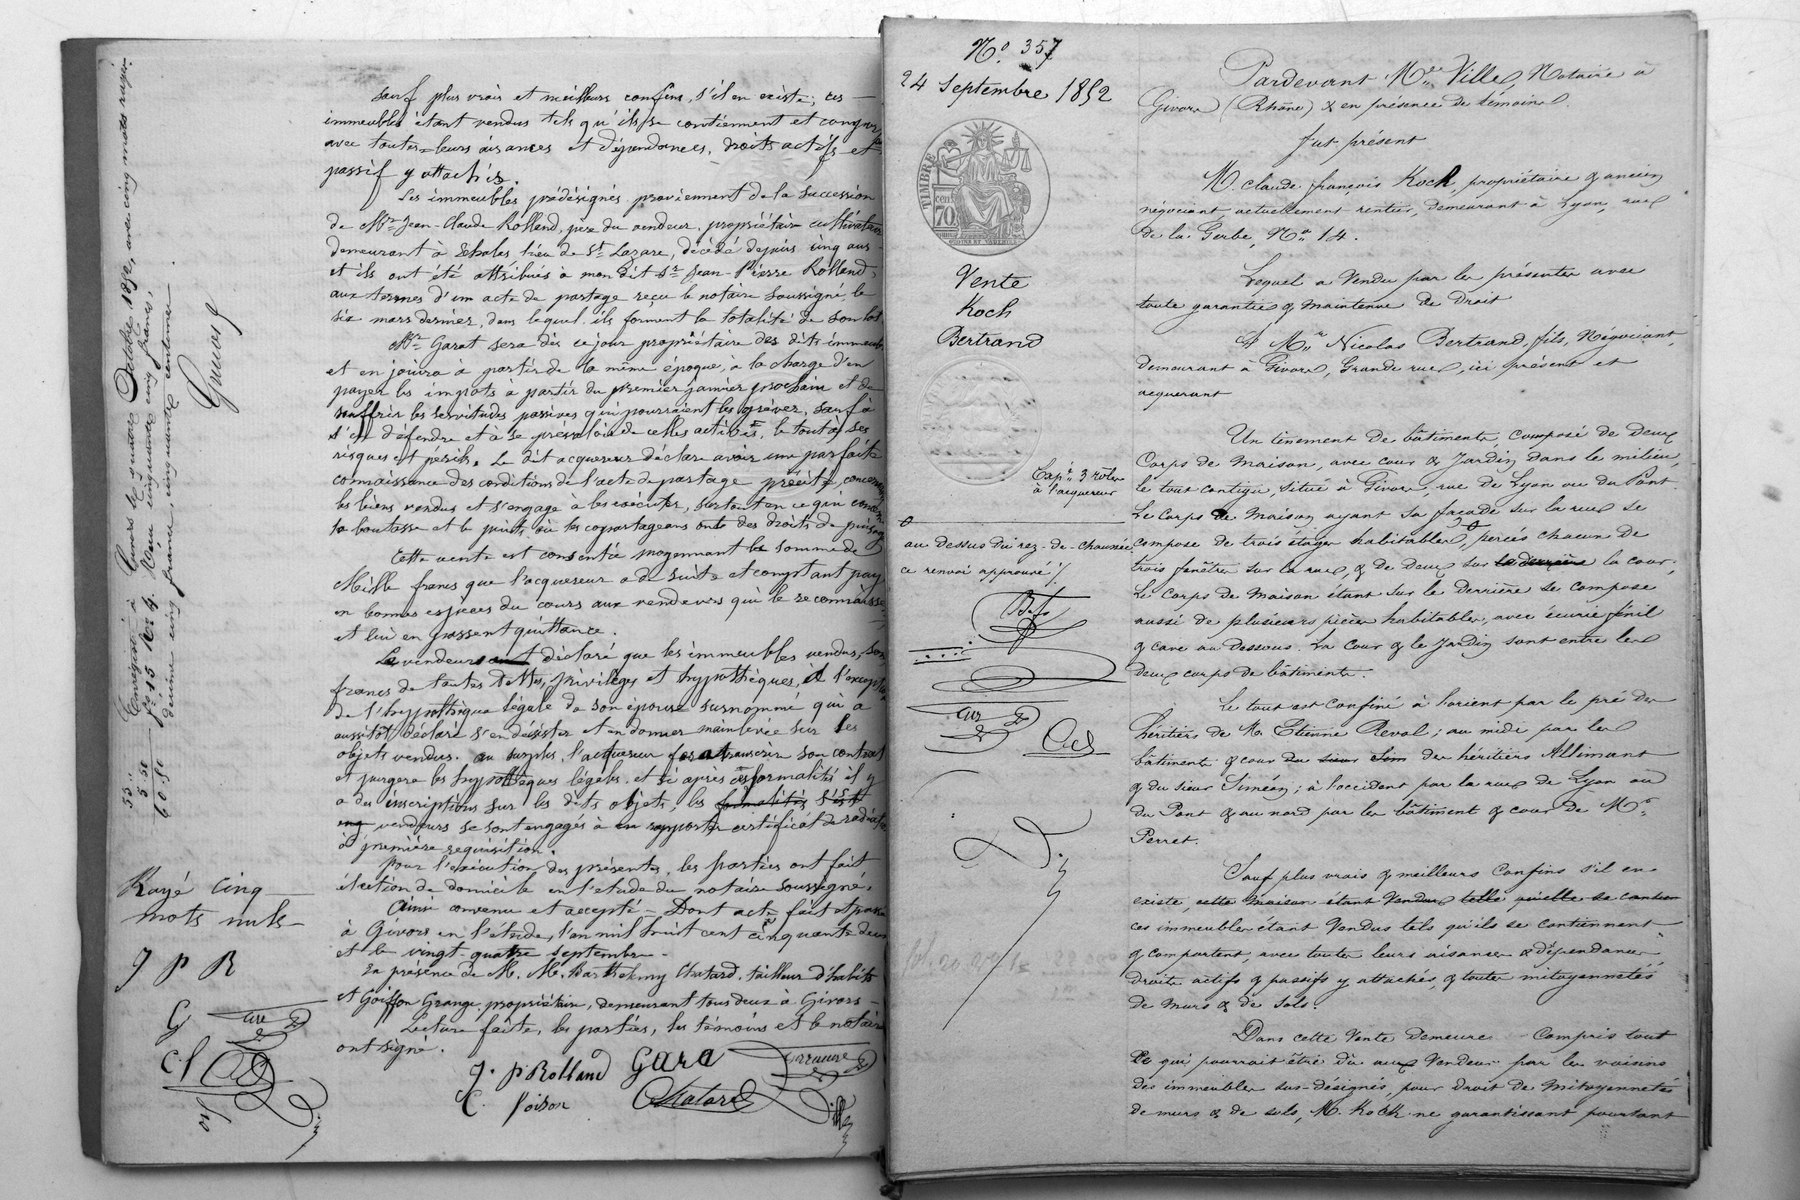 sauf plus vrais et meilleurs confins, s'il en existe; ces
immeubles étant vendus tels qu'ils se contiennent et comportent
avec toutes leurs aisances et dépendances, droits actifs et
passifs y attachés.
Les immeubles prédésignés proviennent de la succession
de Mr Jean-Claude Rolland, père du vendeur, propriétaire cultivateur
demeurant à Echalas, lieu de St Lazare, décédé depuis cinq ans
et ils ont été attribués à mon dit Sr Jean-Pierre Rolland,
aux termes d'un acte de partage reçu le notaire soussigné, le
six mars dernier, dans lequel ils forment la totalité de son lot
Mr Garat sera dès ce jour propriétaire des dits immeubles
et en jouira à partir de la même époque, à la charge d'en
payer les impôts à partir du premier janvier prochain et de
souffrir les servitudes passives qui pourraient les grèver, sauf à
s'en défendre et à se prévaloir de celles actives, le tout à ses
risques et périls. Le dit acquereur déclare avoir une parfaite
connaissance des conditions de l'acte de partage précité, concernant
les biens vendus et s'engage à les exécuter, surtout en ce qui concerne
la boutasse et le puits où les copartageans ont des droits de puisage
Cette vente est consentie moyennant la somme de
Mille francs que l'acquereur a de suite et comptant payé
en bonnes espèces du cours aux vendeurs qui le reconnaissent
et lui en passent quittance.
Le vendeur a déclaré que les immeubles vendus, sont
francs de toutes dettes, privilèges et hypothèques, à l'exception
de l'hypothèque légale de son épouse susnommé qui a
aussitôt déclaré s'en désister et en donner mainlevée sur les
objets vendus. au surplus, l'acquereur fera transcrire son contrat
et purgera les hypothèques légales, et si après ces formalités il y
a des inscriptions sur les dits objets, les formalités s'est
vendeurs se sont engagés à en rapporter certificat de radiation
à première requisition.
Pour l'exécution des présentes, les parties ont fait
élection de domicile en l'étude du notaire soussigné.
Ainsi convenu et accepté — Dont acte fait et passé
à Givors en l'étude, l'an mil huit cent cinquante deux
et le vingt-quatre septembre.
En présence de M. M. Barthelemy Chatard, tailleur d'habits
et Goiffon Grange, propriétaire, demeurant tous deux à Givors
Lecture faite, les parties, les témoins et le notaire
ont signé.
J. P Rolland Gara
C. Poison Chatard
Rayé cinq
mots nuls
J P R
G
55"
5 50
60 50
N° 357
24 Septembre 1852
TIMBRE
70
Vente
Koch
Bertrand
Expn 3 roles
à l'acquereur
au dessus du rez-de-chaussée
ce renvoi approuvé
Pardevant Me Ville, Notaire à
Givors (Rhône) & en présence de témoins.
fut présent
M. Claude françois Koch, propriétaire & ancien
négociant, actuellement rentier, demeurant à Lyon, rue
De la Gerbe, No 14.
Lequel a Vendu par les présentes avec
toute garantie & Maintenue de Droit
A Mr Nicolas Bertrand, fils, Négociant,
demeurant à Givors, Grande rue, ici présent et
acquerant
Un tènement de bâtiments, composé de Deux
Corps de Maison, avec cour & Jardin dans le milieu,
le tout contigu, situé à Givors, rue de Lyon ou du Pont.
Le Corps de Maison ayant sa façade sur la rue se
compose de trois étages habitables, percés chacun de
trois fenêtres sur la rue, & de Deux sur la derrière la cour;
Le Corps de Maison étant sur le Derrière se compose
aussi de plusieurs pièces habitables, avec écurie, fénil
& cave au Dessous. La Cour & le Jardin sont entre les
Deux corps de bâtiments.
Le tout est Confiné à l'orient par le pré des
héritiers de M. Etienne Reval; au midi par les
bâtiments & cour du sieur Sim des héritiers Allimant
& du sieur Siméon; à l'occident par la rue de Lyon ou
du Pont & au nord par les bâtiment & cour De Mr
Perret.
Sauf plus vrais & meilleurs Confins s'il en
existe, cette maison étant Vendue telle qu'elle se contient
ces immeubles étant Vendus tels qu'ils se contiennent
& comportent, avec toutes leurs aisances & Dépendances,
droits actifs & passifs y attachés, & toutes mitoyennetés
de murs & de sols.
Dans cette Vente demeure Compris tout
ce qui pourrait être dû aux Vendeur par les voisins
des immeubles sus-désignés, pour droit de Mitoyennetés
de murs & de sols, M. Koch ne garantissant pourtant